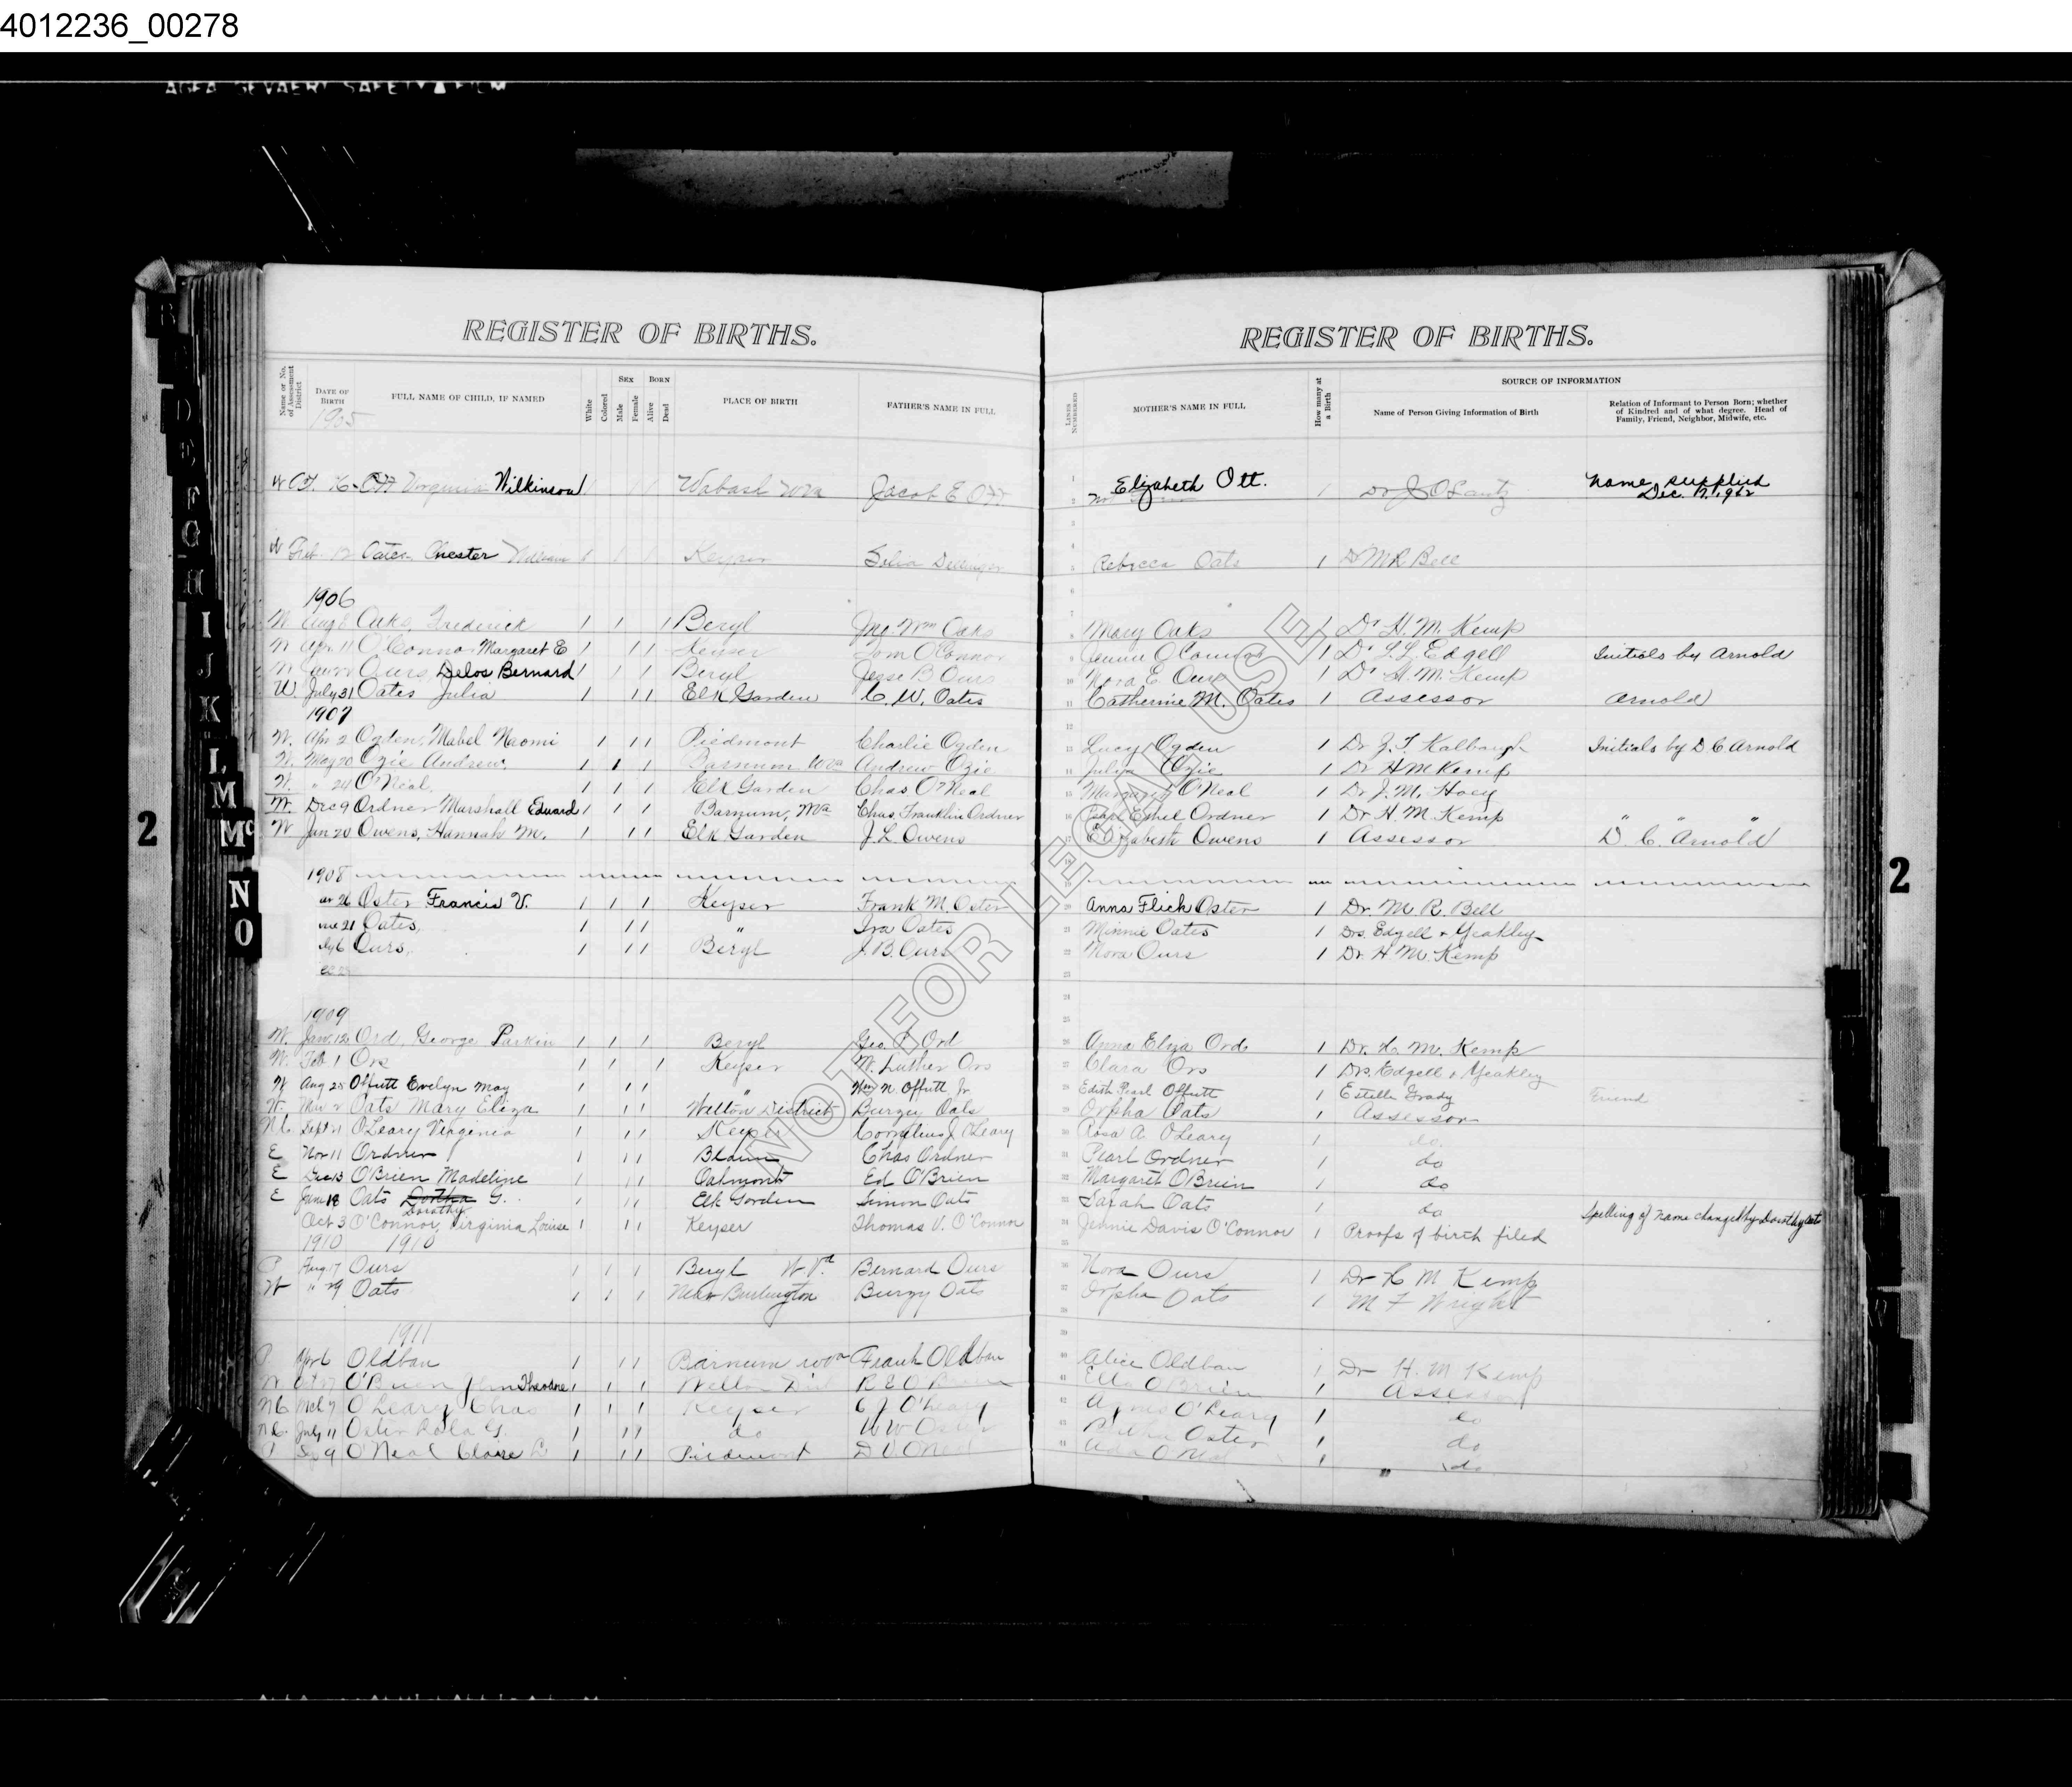 4012236_00278
AGFA GEVAERT SAFETY FILM
REGISTER OF BIRTHS.
Name or No. of Assessment District
DATE OF BIRTH
FULL NAME OF CHILD, IF NAMED
White
Colored
SEX
Male
Female
BORN
Alive
Dead
PLACE OF BIRTH
FATHER'S NAME IN FULL
1905
W Oct. 16 Ott Virginia Wilkinson Wabash W Va Jacob E Ott
W Feb. 12 Oates Chester William Keyser
1906
W Aug 8 Oaks, Frederick 1 1 1 Beryl Jno. Wm Oaks
W Apr. 11 O'Connor Margaret E 1 1 Keyser Tom O'Connor
W Ours, Delos Bernard Beryl Jesse B Ours
W. July 31 Oates Julia 1 1 1 Elk Garden C. W. Oates
1907
W. Apr 2 Ogden, Mabel Naomi 1 1 1 Piedmont Charlie Ogden
W. May 20 Ozie Andrew. 1 1 1 Barnum W Va Andrew Ozie
W. " 24 O'Neal, 1 1 1 Elk Garden Chas O'Neal
W. Dec 9 Ordner Marshall Edward 1 1 1 Barnum, W Va Chas. Franklin Ordner
W Jan 20 Owens, Hannah M. 1 1 1 Elk Garden J. L. Owens
1908
26 Oster Francis V. 1 1 1 Keyser Frank M. Oster
21 Oates, 1 1 1 " Ira Oates
6 Ours, 1 1 1 Beryl J. B. Ours
1909
W. Jan. 12 Ord, George Parkin 1 1 1 Beryl Geo. P Ord
W. Feb. 1 Ors 1 1 1 Keyser W. Luther Ors
W Aug 25 Offutt Evelyn May 1 1 " Wm N Offutt Jr
W. Nov 2 Oats Mary Eliza 1 1 1 Welton District Burzy Oats
Sept 21 O'Leary Virginia 1 1 1 Keyser Cornelius J O'Leary
E Nov 11 Ordner 1 1 1 Blaine Chas Ordner
E Dec 13 O'Brien Madeline 1 1 1 Oakmont Ed O'Brien
E June 18 Oats G. 1 1 Elk Garden Simon Oats
Dorothy
Oct 3 O'Connor, Virginia Louise 1 1 1 Keyser Thomas V. O'Connor
1910 1910
P Aug. 17 Ours 1 1 1 Beryl W Va Bernard Ours
W " 29 Oats 1 1 1 Near Burlington Burzy Oats
1911
P Apr 6 Oldban 1 1 1 Barnum W Va Frank Oldban
W Oct O'Brien John Theodore 1 1 1 Welton Dist R E O'Brien
NC Mch 7 O'Leary Chas 1 1 1 Keyser C J O'Leary
NC. July 11 Oster Rola G. 1 1 1 do W W Oster
P Sep 9 O'Neal Claire C 1 1 1 Piedmont D V O'Neal
REGISTER OF BIRTHS.
LINES NUMBERED
MOTHER'S NAME IN FULL
How many at a Birth
SOURCE OF INFORMATION
Name of Person Giving Information of Birth
Relation of Informant to Person Born; whether of Kindred and of what degree. Head of Family, Friend, Neighbor, Midwife, etc.
Elizabeth Ott. 1 Dr J O Lantz Name supplied
Dec. 17, 1942
Rebecca Oats 1 Dr M R Bell
Mary Oaks 1 Dr H. M. Kemp
Jennie O'Connor 1 Dr L. L. Edgell Initials by Arnold
Nora E. Ours 1 Dr H. M. Kemp
Catherine M. Oates 1 Assessor Arnold
Lucy Ogden 1 Dr Z. T. Kalbaugh Initials by D C Arnold
Julya Ozie 1 Dr H M Kemp
Margaret O'Neal 1 Dr J. M. Hoey
Pearl Ethel Ordner 1 Dr H. M. Kemp
Elizabeth Owens 1 Assessor D. C. Arnold
Anna Flick Oster 1 Dr. M. R. Bell
Minnie Oates 1 Drs. Edgell & Yeakley
Nora Ours 1 Dr. H M. Kemp
Anna Eliza Ord. 1 Dr. H. M. Kemp
Clara Ors 1 Drs. Edgell & Yeakley
Edith Pearl Offutt 1 Estella Grady Friend
Orpha Oats 1 Assessor
Rosa A. O'Leary 1 do.
Pearl Ordner 1 do
Margaret O'Brien 1 do
Sarah Oats 1 do Spelling of name changed by Dorothy Oats
Jennie Davis O'Connor 1 Proofs of birth filed
Nora Ours 1 Dr H M Kemp
Orpha Oats 1 M F Wright
Alice Oldban 1 Dr H. M Kemp
Ella O'Brien 1 Assessor
Agnes O'Leary 1 do
Bertha Oster 1 do
Ada O'Neal 1 " do
NOT FOR LEGAL USE
B
D
E
F
G
H
I
J
K
L
M
Mc
N
O
2
2